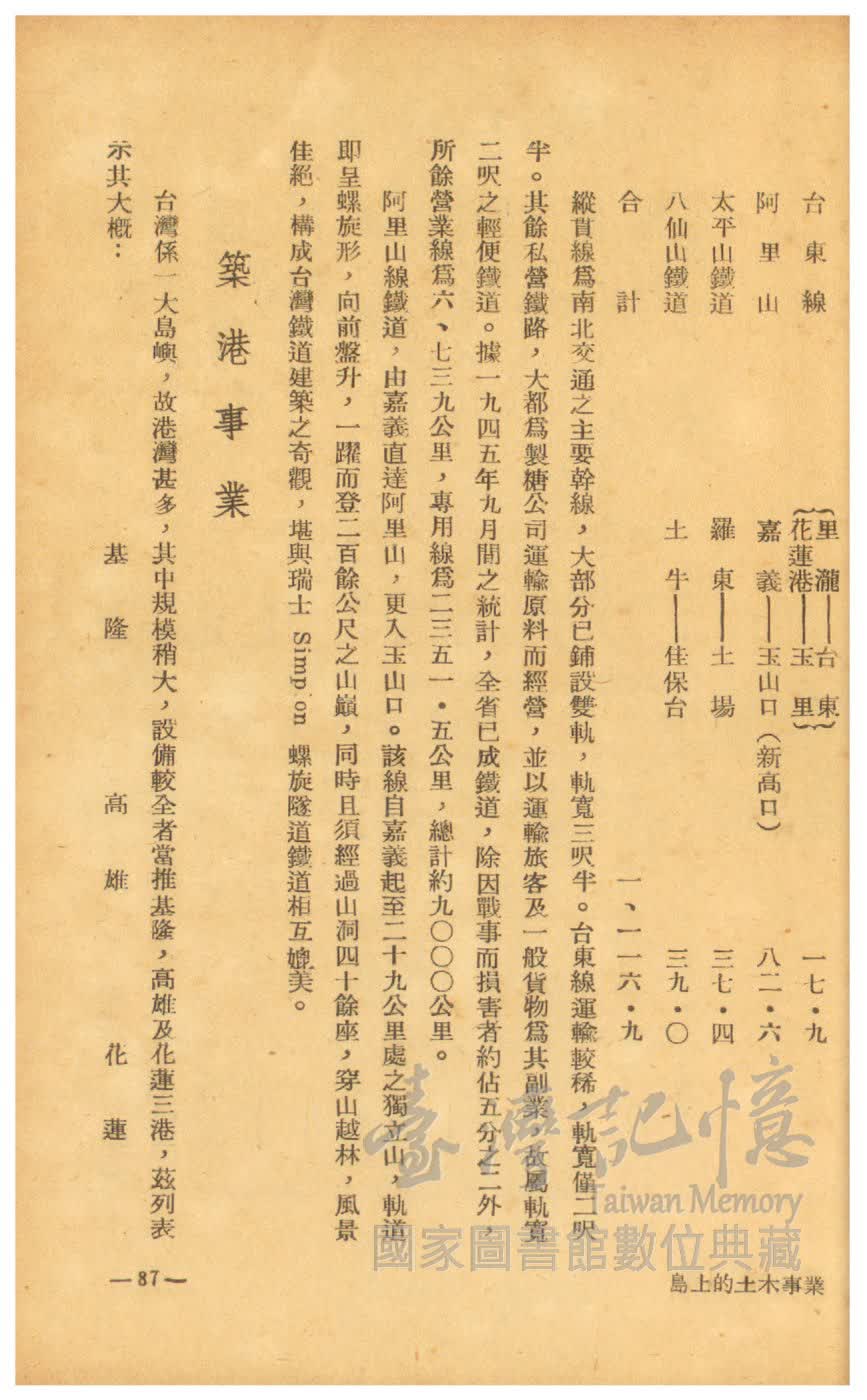 台東線 {里瀧——台東 花蓮港——玉里} 一七・九
阿里山 嘉義——玉山口(新高口) 八二・六
太平山鐵道 羅東——土場 三七・四
八仙山鐵道 土牛——佳保台 三九・〇
合計 一、一一六・九
縱貫線爲南北交通之主要幹線,大部分已鋪設雙軌,軌寬三呎半。台東線運輸較稀,軌寬僅二呎
半。其餘私營鐵路,大都爲製糖公司運輸原料而經營,並以運輸旅客及一般貨物爲其副業,故屬軌寬
二呎之輕便鐵道。據一九四五年九月間之統計,全省已成鐵道,除因戰事而損害者約佔五分之二外,
所餘營業線爲六、七三九公里,專用線爲二三五一・五公里,總計約九〇〇〇公里。
阿里山線鐵道,由嘉義直達阿里山,更入玉山口。該線自嘉義起至二十九公里處之獨立山,軌道
即呈螺旋形,向前盤升,一躍而登二百餘公尺之山巔,同時且須經過山洞四十餘座,穿山越林,風景
佳絕,構成台灣鐵道建築之奇觀,堪與瑞士 Simp on 螺旋隧道鐵道相互媲美。
築港事業
台灣係一大島嶼,故港灣甚多,其中規模稍大,設備較全者當推基隆,高雄及化蓮三港,茲列表
示其大概:
基隆 高雄 花蓮
島上的土木事業
—87—
臺灣記憶
Taiwan Memory
國家圖書館數位典藏